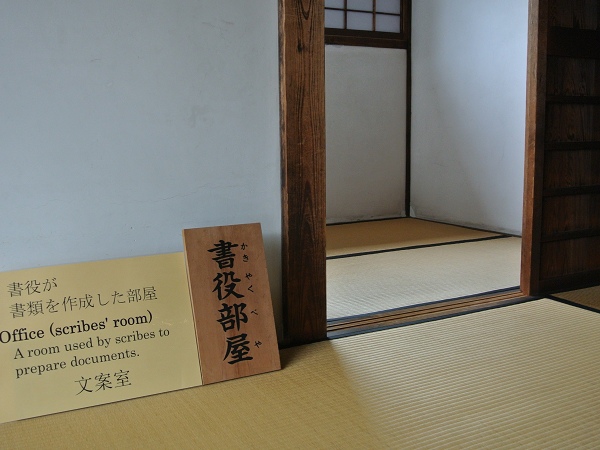 書役が
書類を作成した部屋
Office (scribes' room)
A room used by scribes to
prepare documents.
文案室
書役部屋
かきやくべや